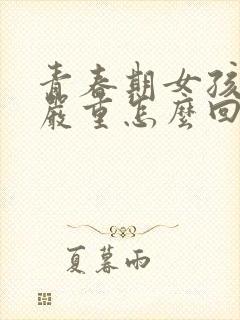 青春期女孩
嚴重怎麼回
夏暮雨